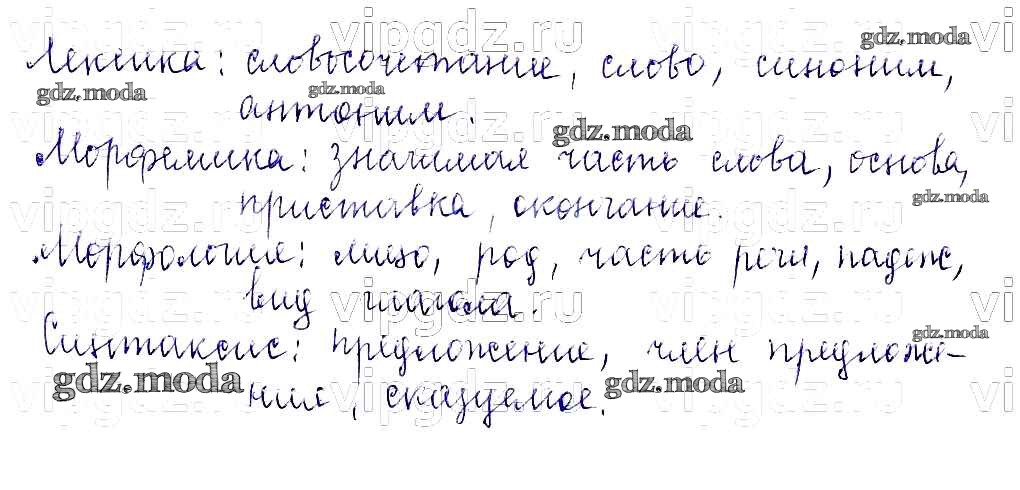 Лексика: словосочетание, слово, синоним,
антоним.
Морфемика: значимая часть слова, основа,
приставка, окончание.
Морфология: лицо, род, часть речи, падеж,
вид глагола.
Синтаксис: предложение, член предложе-
ния, сказуемое.
vipgdz.ru
gdz.moda